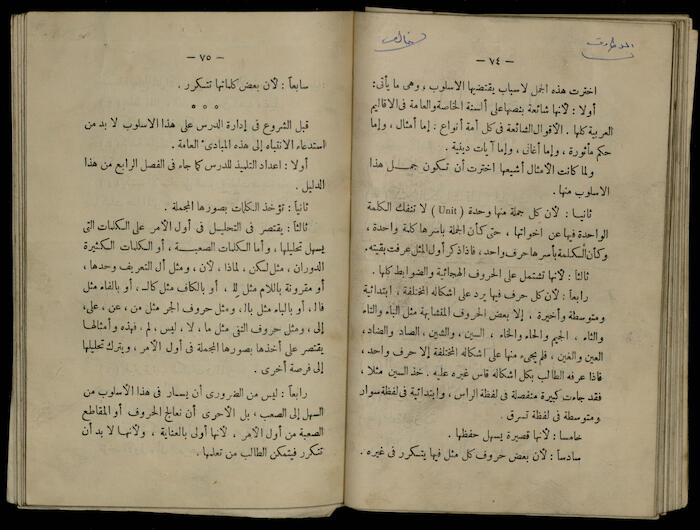 — ٧٤ —
اخترت هذه الجمل لاسباب يقتضيها الاسلوب، وهى ما يأتى:
أولا : لأنها شائعة بنصها على ألسنة الخاصة والعامة فى الاقاليم
العربية كلها . الأقوال الشائعة فى كل أمة أنواع : إما أمثال ، وإما
حكم مأثورة ، وإما أغانى ، وإما آيات دينية .
ولما كانت الأمثال أشيعها اخترت أن تكون جمل هذا
الاسلوب منها .
ثانيا : لأن كل جملة منها وحدة (Unit) لا تنفك الكلمة
الواحدة فيها عن اخواتها ، حتى كأن الجملة بأسرها كلمة واحدة ،
وكأن الكلمة بأسرها حرف واحد، فاذا ذكر أول المثل عرفت بقيته.
ثالثاً : لأنها تشتمل على الحروف الهجائية والضوابط كلها .
رابعاً : لأن كل حرف فيها يرد على اشكاله المختلفة ، ابتدائية
ومتوسطة وأخيرة . إلا بعض الحروف المتشابهة مثل الباء والتاء
والثاء ، الجيم والحاء والخاء ، السين ، والشين ، الصاد والضاد،
العين والغين ، فلم يجىء منها على اشكاله المختلفة إلا حرف واحد ،
فاذا عرفه الطالب بكل اشكاله قاس غيره عليه . خذ السين مثلا ،
فقد جاءت كبيرة منفصلة فى لفظة الراس ، وابتدائية فى لفظة سوار
ومتوسطة فى لفظة تسرق .
خامسا : لأنها قصيرة يسهل حفظها .
سادساً : لأن بعض حروف كل مثل فيها يتكرر فى غيره .
— ٧٥ —
سابعاً : لأن بعض كلماتها تتكرر .
قبل الشروع فى إدارة الدرس على هذا الاسلوب لا بد من
استدعاء الانتباه إلى هذه المبادىء العامة .
أولا : اعداد التلميذ للدرس كما جاء فى الفصل الرابع من هذا
الدليل .
ثانياً : تؤخذ الكلمات بصورها المجملة .
ثالثاً : يقتصر فى التحليل فى أول الأمر على الكلمات التى
يسهل تحليلها ، وأما الكلمات الصعبة ، أو الكلمات الكثيرة
الدوران ، مثل لكن ، لماذا ، لأن ، ومثل أل التعريف وحدها ،
أو مقرونة باللام مثل لل ، أو بالكاف مثل كالـ ، أو بالفاء مثل
فالـ ، أو بالباء مثل بالـ ، ومثل حروف الجر مثل من ، عن ، على،
إلى ، ومثل حروف النفى مثل ما ، لا ، ليس ، لم ، فهذه وأمثالها
يقتصر على أخذها بصورها المجملة فى أول الأمر ، ويترك تحليلها
إلى فرصة أخرى .
رابعاً : ليس من الضرورى أن يسار فى هذا الأسلوب من
السهل إلى الصعب ، بل الأحرى أن نعالج الحروف أو المقاطع
الصعبة من أول الأمر ، لأنها أولى بالعناية ، ولأنها لا بد أن
تتكرر فيتمكن الطالب من تعلمها .